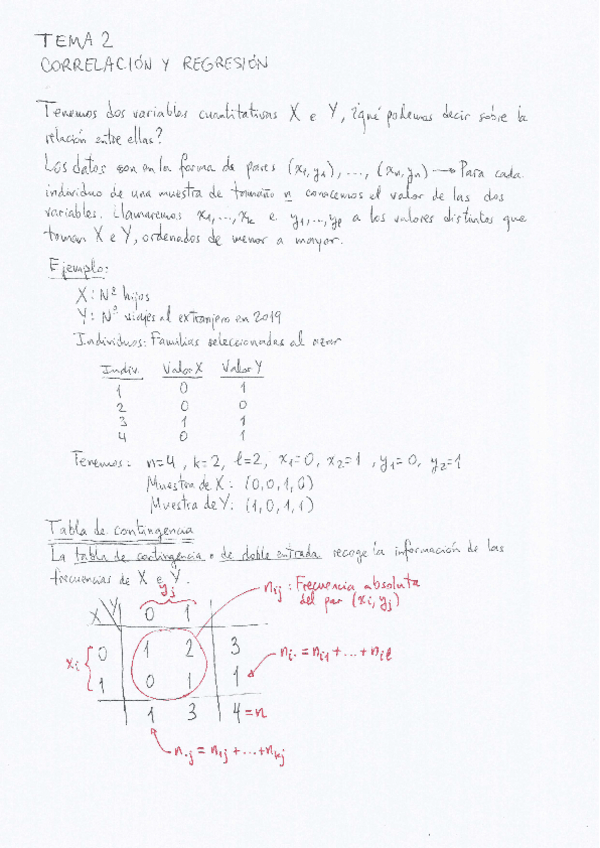 TEMA 2
CORRELACIÓN Y REGRESIÓN
Tenemos dos variables cuantitativas X e Y, ¿qué podemos decir sobre la
relación entre ellas?
Los datos son en la forma de pares (x₁,y₁), ..., (xₙ,yₙ) → Para cada
individuo de una muestra de tamaño n conocemos el valor de las dos
variables. Llamaremos x₁,...,xₖ e y₁,...,yₗ a los valores distintos que
toman X e Y, ordenados de menor a mayor.
Ejemplo:
X: Nº hijos
Y: Nº viajes al extranjero en 2019
Individuos: Familias seleccionadas al azar
Indiv. Valor X Valor Y
1 0 1
2 0 0
3 1 1
4 0 1
Tenemos: n=4, k=2, ℓ=2, x₁=0, x₂=1, y₁=0, y₂=1
Muestra de X: (0,0,1,0)
Muestra de Y: (1,0,1,1)
Tabla de contingencia
La tabla de contingencia o de doble entrada recoge la información de las
frecuencias de X e Y.
yⱼ
nᵢⱼ: Frecuencia absoluta
del par (xᵢ,yⱼ)
X Y 0 1
xᵢ
0 1 2 3
1 0 1 1
nᵢ. = nᵢ₁ + ... + nᵢₗ
1 3 4 = n
n.ⱼ = n₁ⱼ + ... + nₖⱼ